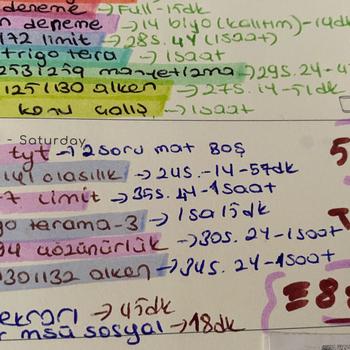 deneme → Full-15dk
n deneme → 14 biyo (kalıtım)-14dk
172 limit → 28s. 4y (1saat)
trigo tera → 1saat
253 1259 manyetlama → 29s. 24-4
1251130 alken → 27s. 14-51dk
konu çalış → 1saat
- Saturday
tyt → 12soru mat BOŞ
141 olasılık → 24s. -14-57dk
7 limit → 35s. 4y-1saat
go tarama-3 → 1sa 15dk
94 çözünürlük → 30s. 24-1saat
1301132 alken → 34s. 24-1saat
ekrarı → 45dk
r msü sosyal → 18dk
=8s